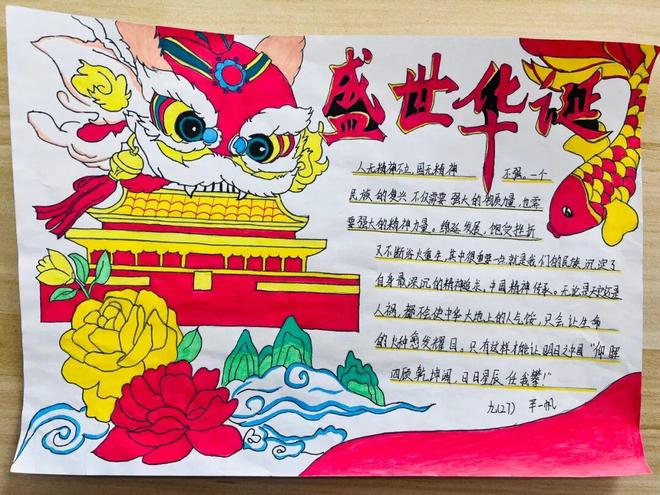 盛世华诞
人无精神不立，国无精神 不强。一个
民族的复兴不仅需要强大的物质力量，也需
要强大的精神力量。绵延发展，饱受挫折
又不断浴火重生，其中很重要一点就是我们的民族沉淀了
自身最深沉的精神追求。中国精神传承。无论是天灾还是
人祸，都不会使中华大地上的人点馁，只会让生命
的火种愈发耀目。只有这样才能让明日之中国“仰
四顾 ，日月星辰任我攀！”
九(27) 一帆